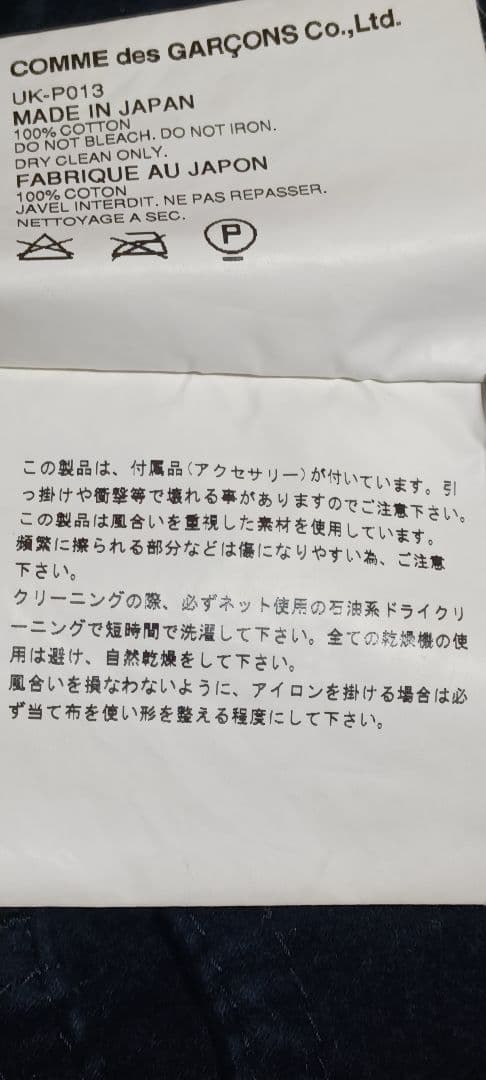 COMME des GARÇONS Co.,Ltd.
UK-P013
MADE IN JAPAN
100% COTTON
DO NOT BLEACH. DO NOT IRON.
DRY CLEAN ONLY.
FABRIQUE AU JAPON
100% COTON
JAVEL INTERDIT. NE PAS REPASSER.
NETTOYAGE A SEC.
P
この製品は、付属品(アクセサリー)が付いています。引
っ掛けや衝撃等で壊れる事がありますのでご注意下さい。
この製品は風合いを重視した素材を使用しています。
頻繁に擦られる部分などは傷になりやすい為、ご注意
下さい。
クリーニングの際、必ずネット使用の石油系ドライクリ
ーニングで短時間で洗濯して下さい。全ての乾燥機の使
用は避け、自然乾燥をして下さい。
風合いを損なわないように、アイロンを掛ける場合は必
ず当て布を使い形を整える程度にして下さい。